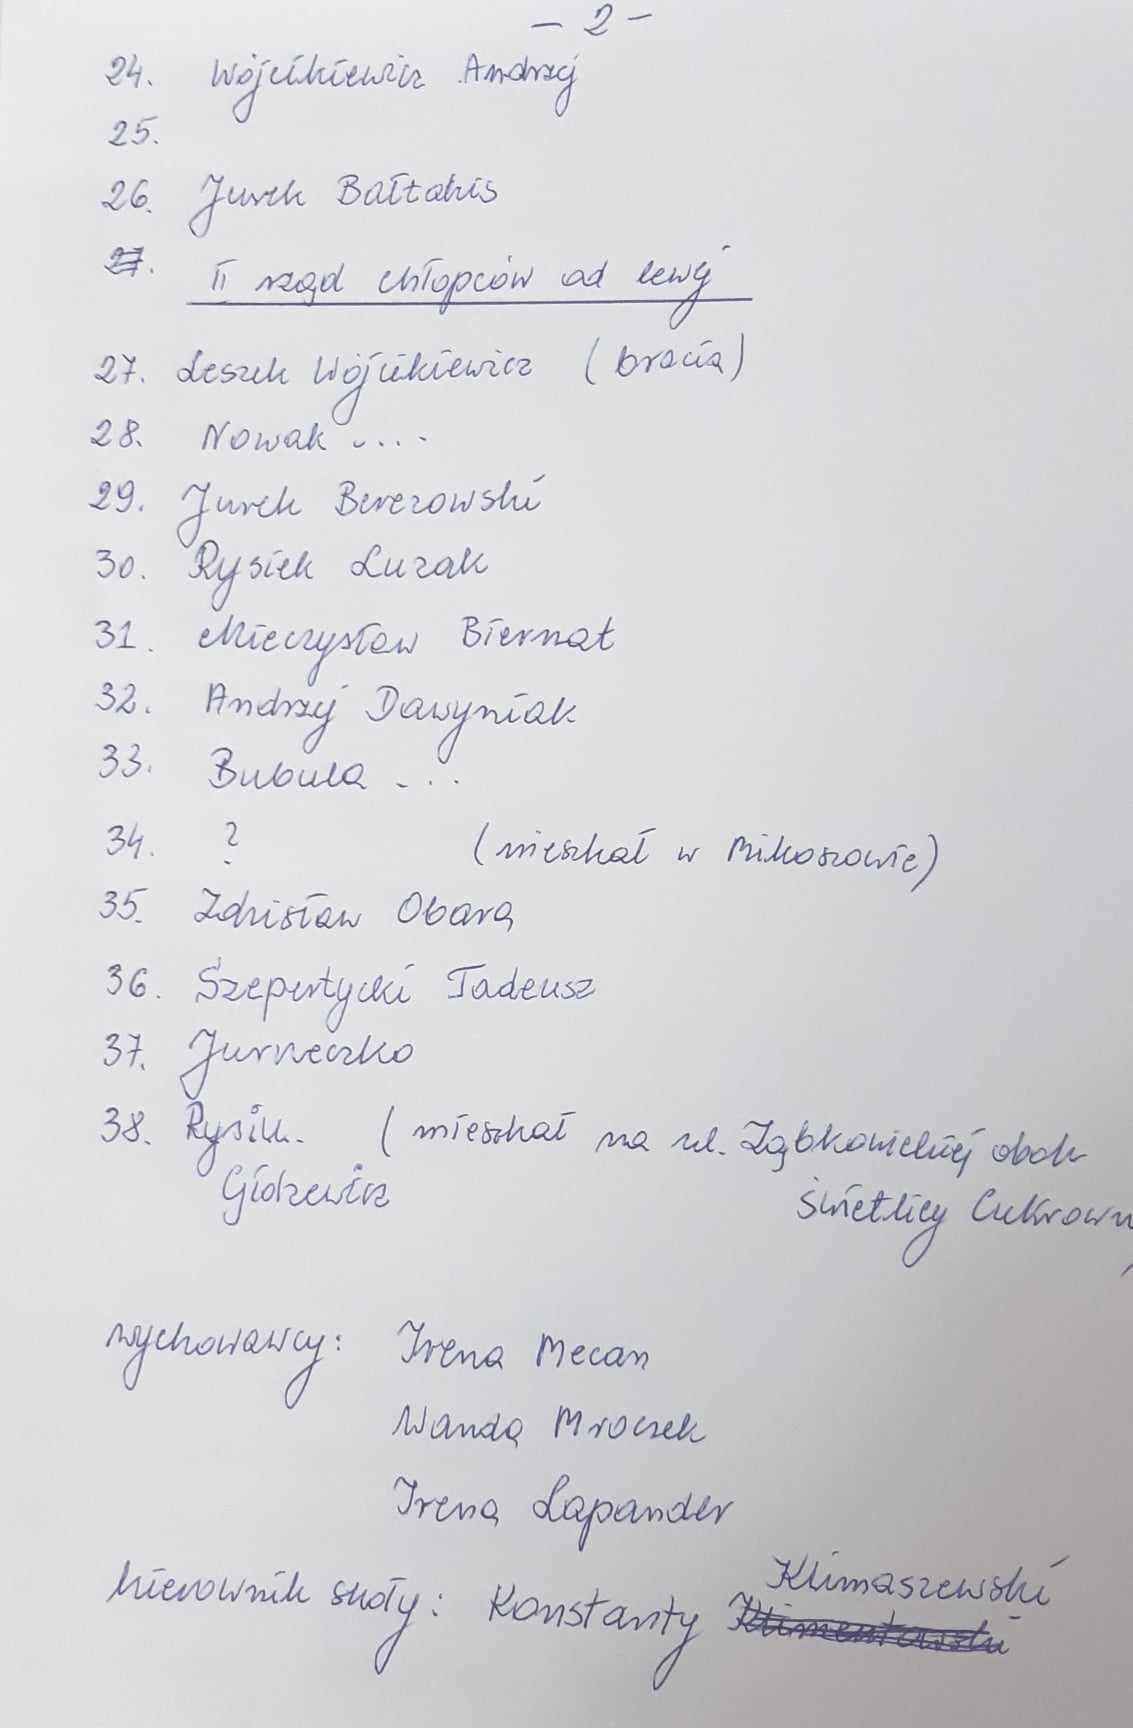 – 2 –
24. Wójcikiewicz Andrzej
25.
26. Jurek Bałtakis
27.
II rząd chłopców od lewej
27. Leszek Wójcikiewicz (bracia)
28. Nowak ....
29. Jurek Berezowski
30. Rysiek Luzak
31. Mieczysław Biernat
32. Andrzej Dawyniak
33. Bubuła ...
34. ? (mieszkał w Mikoszowie)
35. Zdzisław Obara
36. Szepertycki Tadeusz
37. Jurneczko
38. Rysiek. (mieszkał na ul. Ząbkowickiej obok
Gidzewicz świetlicy Cukrown
wychowawcy: Irena Mecan
Wanda Mroczek
Irena Lapander
Klimaszewski
kierownik skoły: Konstanty